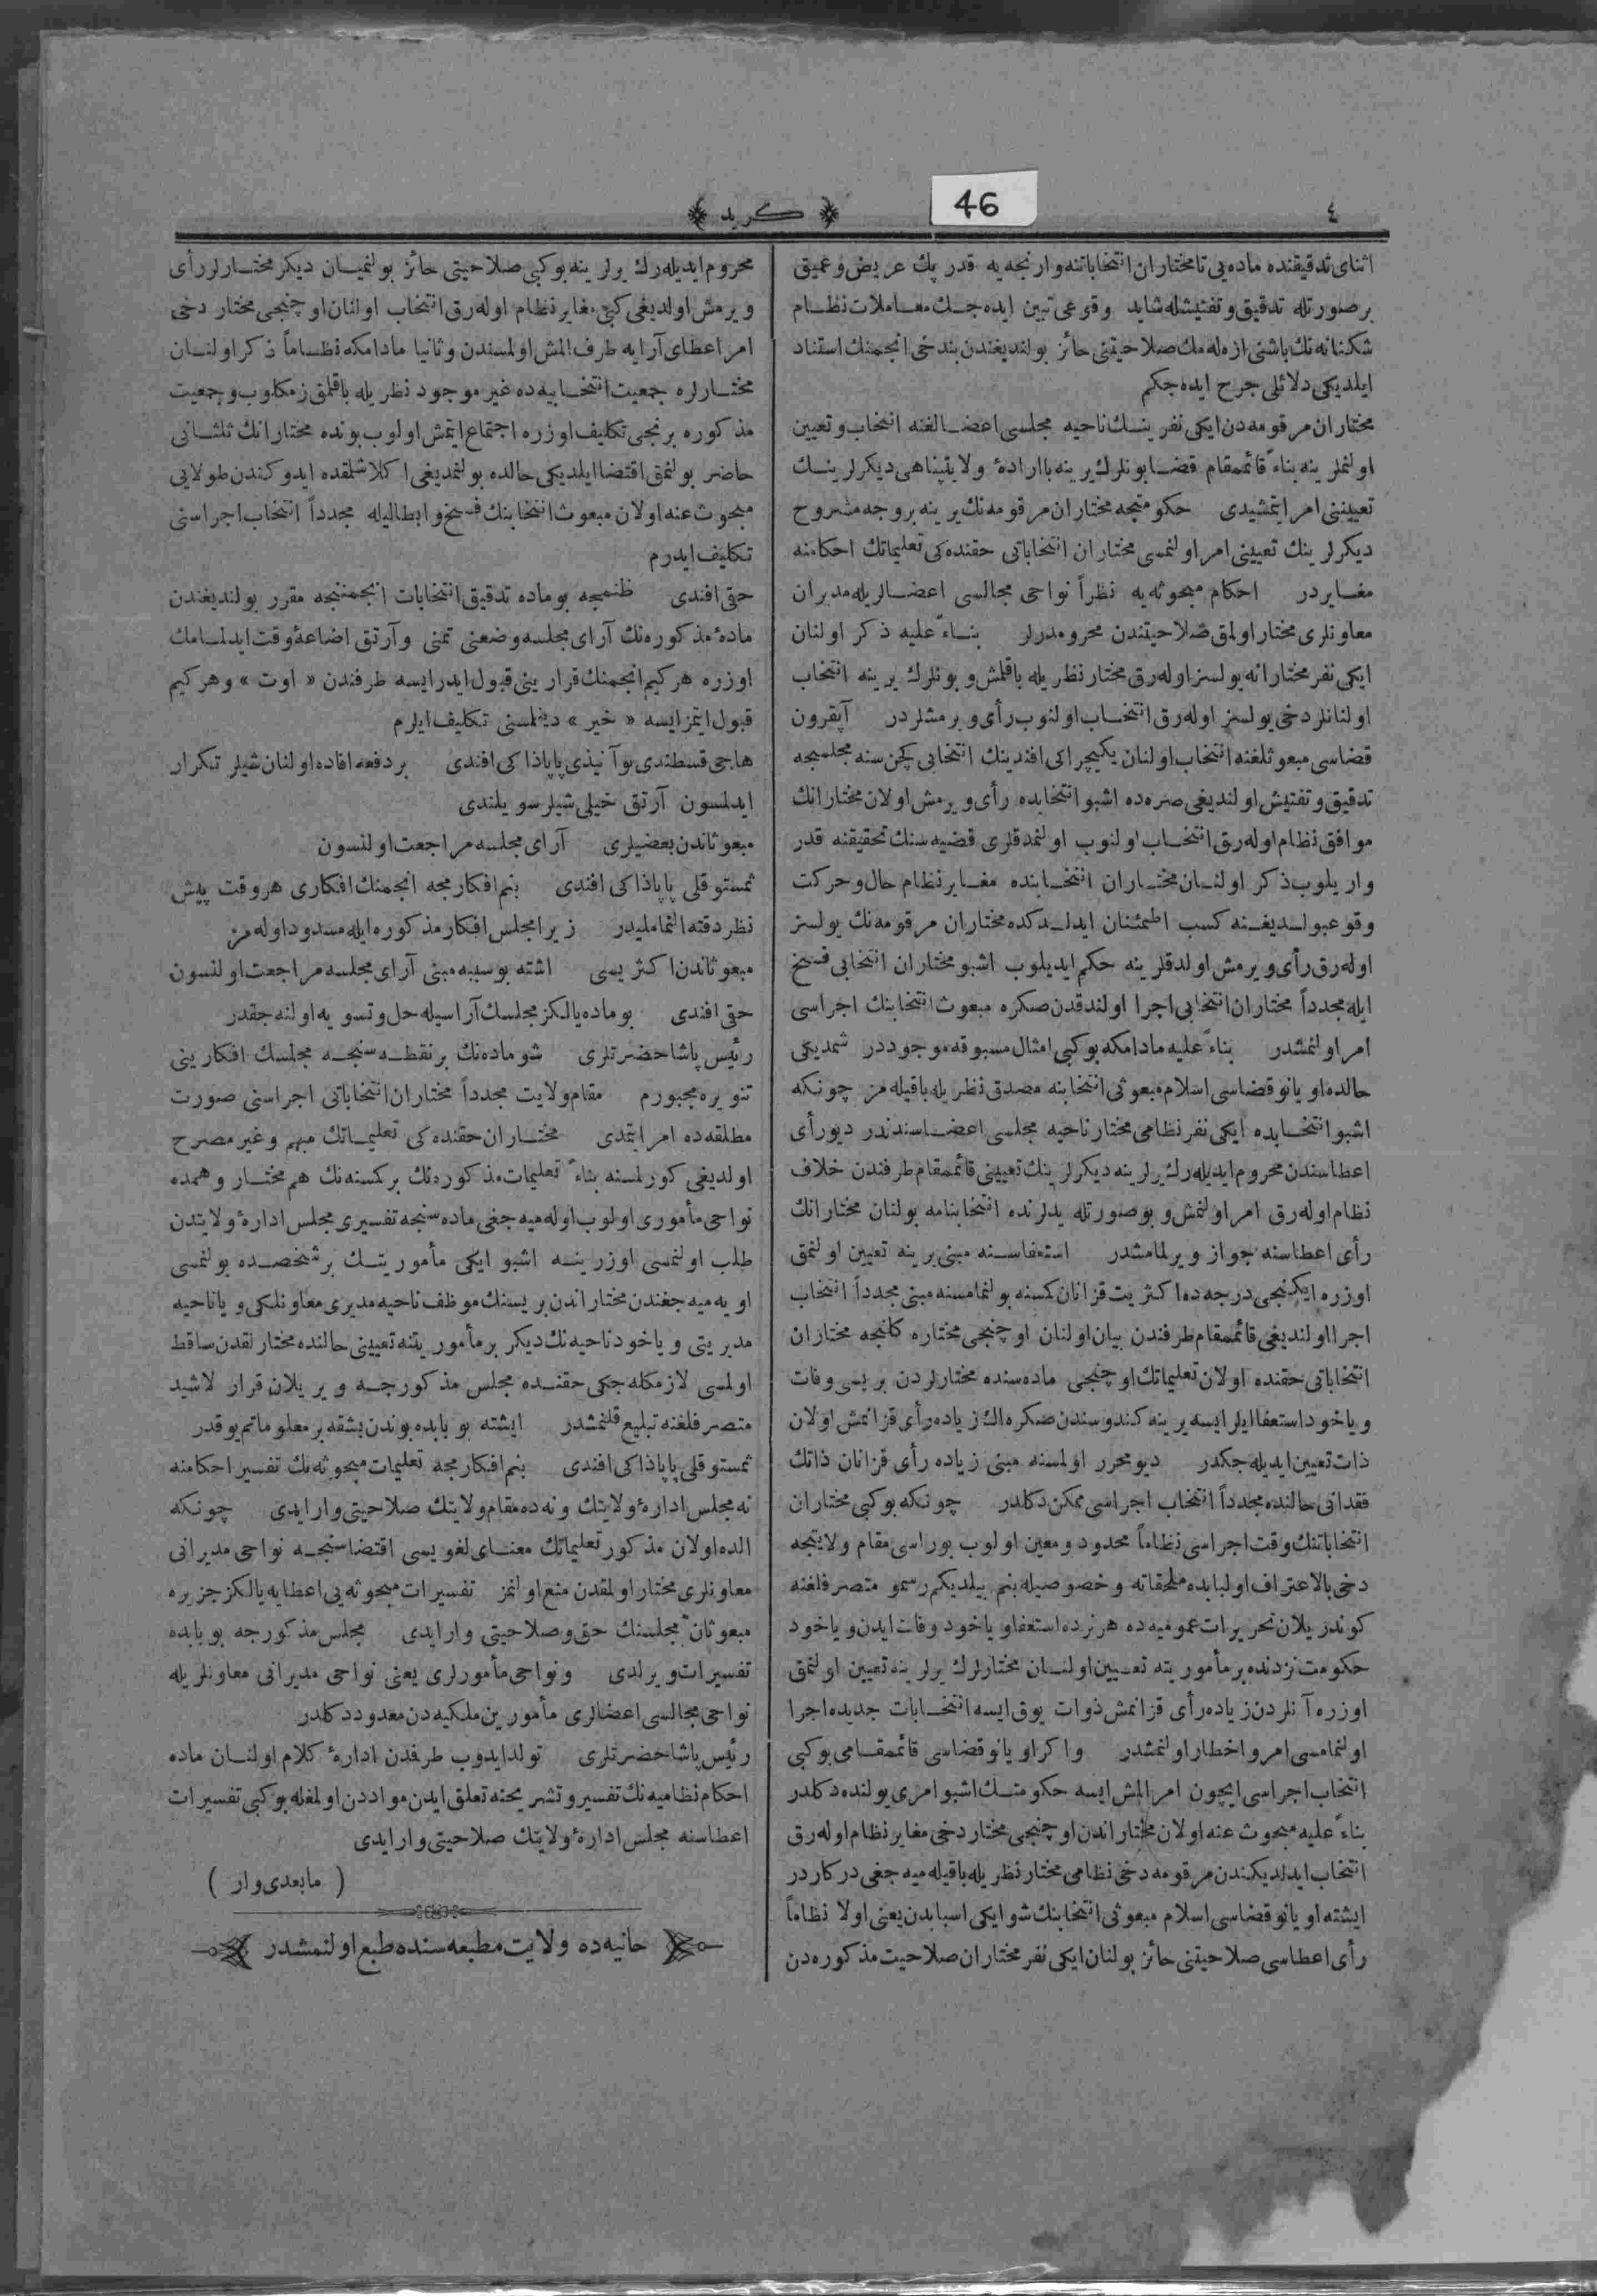 ٤
46
كريد
اثنای تدقیقنده ماده یی تا مختاران انتخاباتنه وارنجه یه قدر پك عریض و عمیق
بر صورتله تدقیق و تفتیشله شاید وقوعی تبین ایده جك معاملات نظام
شكنانه نك باشنی ازه له مك صلاحیتنی حائز بولندیغندن بندخی انجمنك استناد
ایلدیكی دلائلی جرح ایده جكم
مختاران مرقومه دن ایكی نفرینك ناحیه مجلسی اعضالغنه انتخاب و تعیین
اولنملرینه بناءً قائممقام قضا بونلرك یرینه با ارادهٔ ولایتپناهی دیكرلرینك
تعییننی امر ایتمشیدی حكومتجه مختاران مرقومه نك یرینه بروجه مشروح
دیكرلرینك تعیینی امر اولنمسی مختاران انتخاباتی حقنده كی تعلیماتك احكامنه
مغایردر احكام مبحوثه یه نظراً نواحی مجالسی اعضالریله مدیران
معاونلری مختار اولمق صلاحیتندن محرومدرلر بناءً علیه ذكر اولنان
ایكی نفر مختارانه یولسز اوله رق مختار نظریله باقلمش و بونلرك یرینه انتخاب
اولنانلردخی یولسز اوله رق انتخاب اولنوب رأی ویرمشلردر آپقرون
قضاسی مبعوثلغنه انتخاب اولنان یكیچراكی افندینك انتخابی كچن سنه مجلسجه
تدقیق و تفتیش اولندیغی صره ده اشبو انتخابده رأی ویرمش اولان مختارانك
موافق نظام اوله رق انتخاب اولنوب اولنمدقلری قضیه سنك تحقیقنه قدر
واریلوب ذكر اولنان مختاران انتخابنده مغایر نظام حال و حركت
وقوعبولدیغنه كسب اطمئنان ایدلدكده مختاران مرقومه نك یولسز
اوله رق رأی ویرمش اولدقلرینه حكم ایدیلوب اشبو مختاران انتخابی فسخ
ایله مجدداً مختاران انتخابی اجرا اولندقدن صكره مبعوث انتخابنك اجراسی
امر اولنمشدر بناءً علیه مادامكه بوكبی امثال مسبوقه موجوددر شمدیكی
حالده اویانو قضاسی اسلام مبعوثی انتخابنه مصدق نظریله باقیله مز چونكه
اشبو انتخابده ایكی نفر نظامی مختار ناحیه مجلسی اعضاسندندر دیو رأی
اعطاسندن محروم ایدیله رك یرلرینه دیكرلرینك تعیینی قائممقام طرفندن خلاف
نظام اوله رق امر اولنمش و بو صورتله یدلرنده انتخابنامه بولنان مختارانك
رأی اعطاسنه جواز ویرلمامشدر استعفاسنه مبنی یرینه تعیین اولنمق
اوزره ایكنجی درجه ده اكثریت قزانان كسنه بولنمامسنه مبنی مجدداً انتخاب
اجرا اولندیغی قائممقام طرفندن بیان اولنان اوچنجی مختاره كلنجه مختاران
انتخاباتی حقنده اولان تعلیماتك اوچنجی ماده سنده مختارلردن بریسی وفات
ویاخود استعفا ایلر ایسه یرینه كندوسندن صكره اك زیاده رأی قزانمش اولان
ذات تعیین ایدیله جكدر دیو محرر اولمسنه مبنی زیاده رأی قزانان ذاتك
فقدانی حالنده مجدداً انتخاب اجراسی ممكن دكلدر چونكه بوكبی مختاران
انتخاباتنك وقت اجراسی نظاماً محدود و معین اولوب بوراسی مقام ولایتجه
دخی بالاعتراف اولبابده ملحقاته و خصوصیله بنم بیلدیكم رسمو متصرفلغنه
كوندریلان تحریرات عمومیه ده هر نرده استعفا و یاخود وفات ایدن و یاخود
حكومت نزدنده بر مأموریته تعیین اولنان مختارلرك یرلرینه تعیین اولنمق
اوزره آنلردن زیاده رأی قزانمش ذوات یوق ایسه انتخابات جدیده اجرا
اولنمامسی امر و اخطار اولنمشدر واكر اویانو قضاسی قائممقامی بوكبی
انتخاب اجراسی ایچون امر المش ایسه حكومتك اشبو امری یولنده دكلدر
بناءً علیه مبحوث عنه اولان مختاراندن اوچنجی مختار دخی مغایر نظام اوله رق
انتخاب ایدلدیكندن مرقومه دخی نظامی مختار نظریله باقیله میه جغی دركاردر
ایشته اویانو قضاسی اسلام مبعوثی انتخابنك شو ایكی اسبابدن یعنی اولا نظاماً
رأی اعطاسی صلاحیتنی حائز بولنان ایكی نفر مختاران صلاحیت مذكوره دن
محروم ایدیله رك یرلرینه بوكبی صلاحیتی حائز بولنمیان دیكر مختارلر رأی
ویرمش اولدیغی كبی مغایر نظام اوله رق انتخاب اولنان اوچنجی مختار دخی
امر اعطای آرایه طرف المش اولمسندن و ثانیا مادامكه نظاماً ذكر اولنان
مختارلره جمعیت انتخابیه ده غیر موجود نظریله باقلمق لازمكلوب و جمعیت
مذكوره برنجی تكلیف اوزره اجتماع ایتمش اولوب بونده مختارانك ثلثانی
حاضر بولنمق اقتضا ایلدیكی حالده بولنمدیغی اكلاشلمقده ایدوكندن طولایی
مبحوث عنه اولان مبعوث انتخابنك فسخ و ابطالیله مجدداً انتخاب اجراسنی
تكلیف ایدرم
حقی افندی ظنمجه بو ماده تدقیق انتخابات انجمننجه مقرر بولندیغندن
مادهٔ مذكوره نك آرای مجلسه وضعنی تمنی و آرتق اضاعهٔ وقت ایدلمامك
اوزره هركیم انجمنك قرارینی قبول ایدر ایسه طرفندن « اوت » و هركیم
قبول ایتمز ایسه « خیر » دینلمسنی تكلیف ایلرم
هاجی قسطندی یوآنیذی پاپاذاكی افندی بر دفعه افاده اولنان شیلر تكرار
ایدلمسون آرتق خیلی شیلر سویلندی
مبعوثاندن بعضیلری آرای مجلسه مراجعت اولنسون
ثمستوقلی پاپاذاكی افندی بنم افكارمجه انجمنك افكاری هر وقت پیش
نظر دقته النماملیدر زیرا مجلس افكار مذكوره ایله مسدود اوله مز
مبعوثاندن اكثریسی اشته بو سببه مبنی آرای مجلسه مراجعت اولنسون
حقی افندی بو ماده یالكز مجلسك آراسیله حل و تسویه اولنه جقدر
رئیس پاشا حضرتلری شو ماده نك بر نقطه سنجه مجلسك افكارینی
تنویره مجبورم مقام ولایت مجدداً مختاران انتخاباتی اجراسنی صورت
مطلقه ده امر ایتمدی مختاران حقنده كی تعلیماتك مبهم و غیر مصرح
اولدیغی كورلمسنه بناءً تعلیمات مذكوره نك بر كسنه نك هم مختار و همده
نواحی مأموری اولوب اوله میه جغی ماده سنجه تفسیری مجلس ادارهٔ ولایتدن
طلب اولنمسی اوزرینه اشبو ایكی مأموریتك بر شخصده بولنمسی
اویه میه جغندن مختاراندن بریسنك موظف ناحیه مدیری معاونلكی و یا ناحیه
مدیریتی و یاخود ناحیه نك دیكر بر مأموریتنه تعیینی حالنده مختارلقدن ساقط
اولمسی لازمكله جكی حقنده مجلس مذكورجه ویریلان قرار لاشید
متصرفلغنه تبلیغ قلنمشدر ایشته بو بابده بوندن بشقه بر معلوماتم یوقدر
ثمستوقلی پاپاذاكی افندی بنم افكارمجه تعلیمات مبحوثه نك تفسیر احكامنه
نه مجلس ادارهٔ ولایتك و نه ده مقام ولایتك صلاحیتی وار ایدی چونكه
الده اولان مذكور تعلیماتك معنای لغویسی اقتضاسنجه نواحی مدیرانی
معاونلری مختار اولمقدن منع اولنمز تفسیرات مبحوثه یی اعطایه یالكز جزیره
مبعوثان مجلسنك حق و صلاحیتی وار ایدی مجلس مذكورجه بو بابده
تفسیرات ویرلدی و نواحی مأمورلری یعنی نواحی مدیرانی معاونلریله
نواحی مجالسی اعضالری مأمورین ملكیه دن معدود دكلدر
رئیس پاشا حضرتلری تولد ایدوب طرفدن ادارهٔ كلام اولنان ماده
احكام نظامیه نك تفسیر و تشریحنه تعلق ایدن مواددن اولمغله بوكبی تفسیرات
اعطاسنه مجلس ادارهٔ ولایتك صلاحیتی وار ایدی
( مابعدی وار )
حانیه ده ولایت مطبعه سنده طبع اولنمشدر